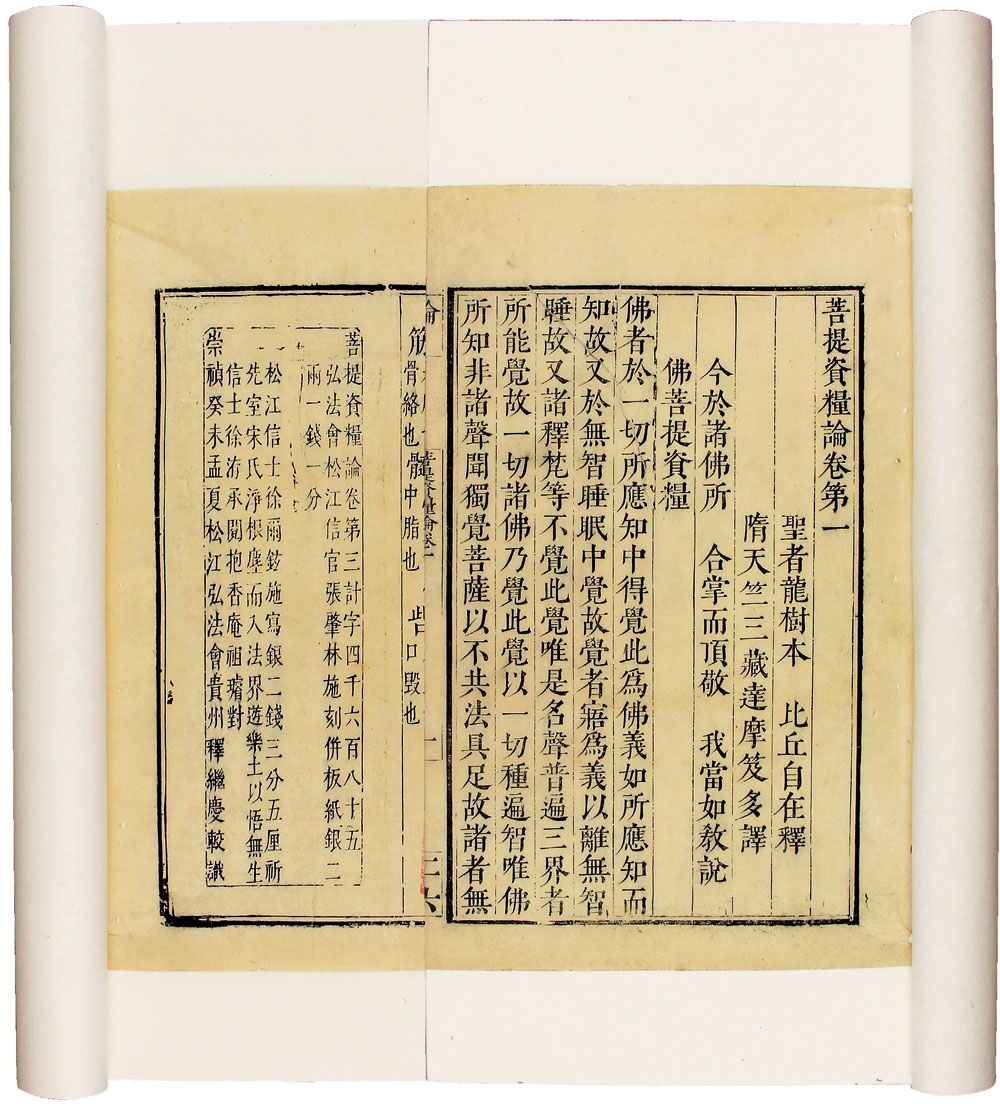 菩提資糧論卷第一
聖者龍樹本　比丘自在釋
隋天竺三藏達摩笈多譯
今於諸佛所　合掌而頂敬　我當如教說
佛菩提資糧
佛者於一切所應知中得覺此為佛義如所應知而
知故又於無智睡眠中覺故覺者寤為義以離無智
睡故又諸釋梵等不覺此覺唯是名聲普遍三界者
所能覺故一切諸佛乃覺此覺以一切種遍智唯佛
所知非諸聲聞獨覺菩薩以不共法具足故諸者無
論
菩提資糧論卷一
筋
骨絡也　髓中脂也　呰口毀也
菩提資糧論卷第三計字四千六百八十五
弘法會松江信官張肇林施刻併板紙銀二
兩一錢一分
松江信士徐爾鉉施寫銀二錢三分五厘祈
先室宋氏淨根塵而入法界遊樂土以悟無生
信士徐洊承閱抱香庵祖璿對
崇禎癸未孟夏松江弘法會貴州釋繼慶較識